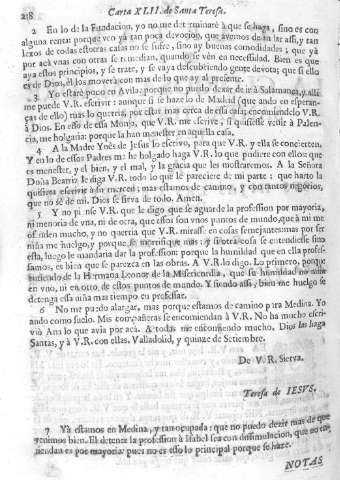 218 Carta XLII. de Santa Teresa.
2 En lo de la Fundacion, yo no me determinarè à que se haga, sino es con
alguna renta porque veo yà tan poca devocion, que avemos de andar assi, y tan
lexos de todas estotras casas no se sufre, sino ay buenas comodidades; que yà
por acà vnas con otras se remedian, quando se vèn en necessidad. Bien es que
aya estos principios, y se trate, y se vaya descubriendo gente devota; que si ello
es de Dios, èl los moverà con mas de lo que ay al presente.
3 Yo estarè poco en Avila; porque no puedo dexar de ir à Salamanca, y alli
me puede V.R. escrivir: aunque si se haze lo de Madrid (que ando en esperan-
ças de ello) mas lo querria, por estar mas cerca de essa casa; encomiendelo V.R.
à Dios. En esso de essa Monja, que V.R. me escrive, si quisiesse venir à Palen-
cia, me holgaria: porque la han menester en aquella casa.
4 A la Madre Ynès de Jesus lo escrivo, para que V.R. y ella se concierten.
Y en lo de essos Padres me he holgado haga V.R. lo que pudiere con ellos: que
es menester, y el bien, y el mal, y la gracia que les mostraremos. A la Señora
Doña Beatriz le diga V.R. todo lo que le pareciere de mi parte: que harto la
quisiera escrivir à su merced; mas estamos de camino, y con tantos negocios,
que no sè de mi. Dios se sirva de todo. Amen.
5 Y no piense V.R. que le digo que se aguarde la profession por mayoria,
ni menoria de vna, ni de otra, que essos son vnos puntos de mundo, que à mi me
ofenden mucho, y no querria que V.R. mirasse en cosas semejantes: mas por ser
niña me huelgo, y porque se mortifique mas: y si otra cosa se entendiesse sino
esta, luego le mandaria dar la profession: porque la humildad que en ella profes-
samos, es bien que se parezca en las obras. A V.R. lo digo. Lo primero, porque
entiendo de la Hermana Leonor de la Misericordia, que su humildad no mira
en vno, ni en otro de estos puntos de mundo. Y siendo assi, bien me huelgo se
detenga essa niña mas tiempo en professar.
6 No me puedo alargar, mas porque estamos de camino para Medina. Yo
ando como suelo. Mis compañeras se encomiendan à V.R. No ha mucho escri-
viò Ana lo que avia por acà. A todas me encomiendo mucho. Dios las haga
Santas, y à V.R. con ellas. Valladolid, y quinze de Setiembre.
De V. R. Sierva.
Teresa de IESVS.
7 Yà estamos en Medina, y tan ocupada; que no puedo dezir mas de que
venimos bien. El detener la profession à Isabel sea con dissimulacion, que no en-
tiendan es por mayoria: pues no es esso lo principal porque se haze.
NOTAS